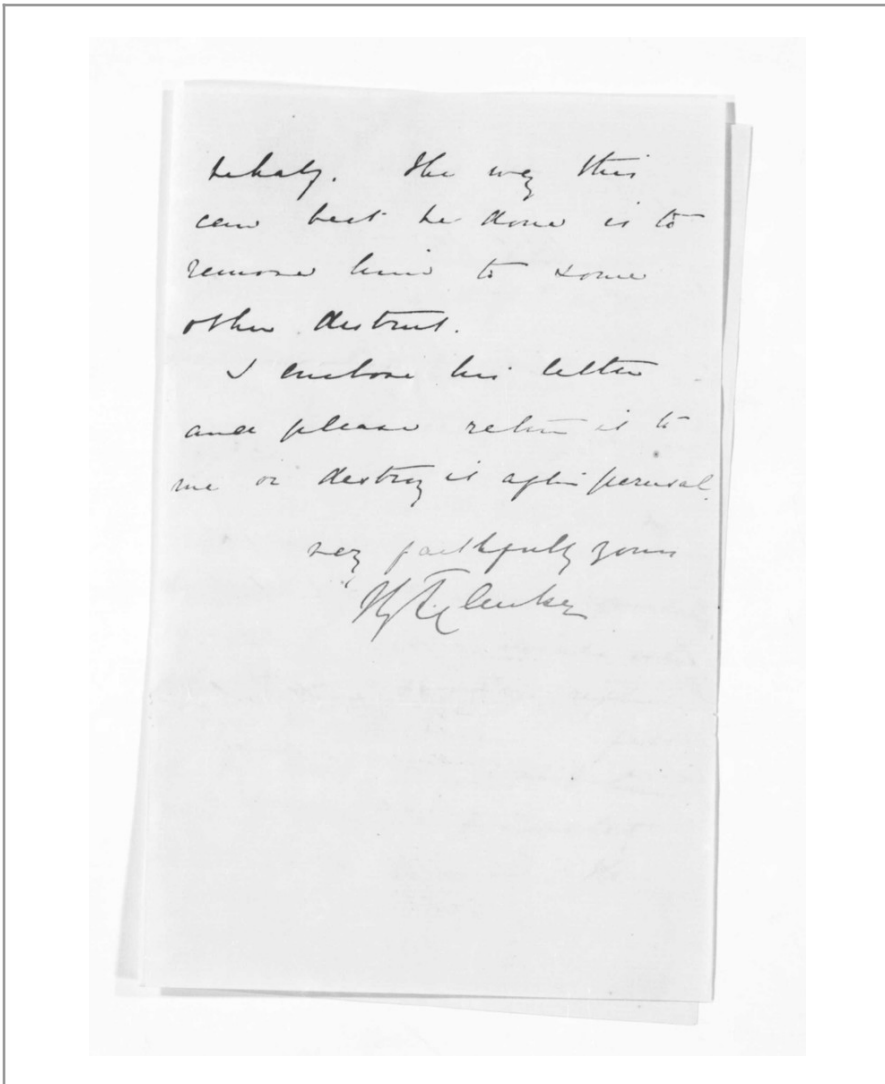 behalf. The way this
can best be done is to
remove him to some
other district.
I enclose his letter
and please return it to
me or destroy it after perusal.
very faithfully yours
H. T. Clarke